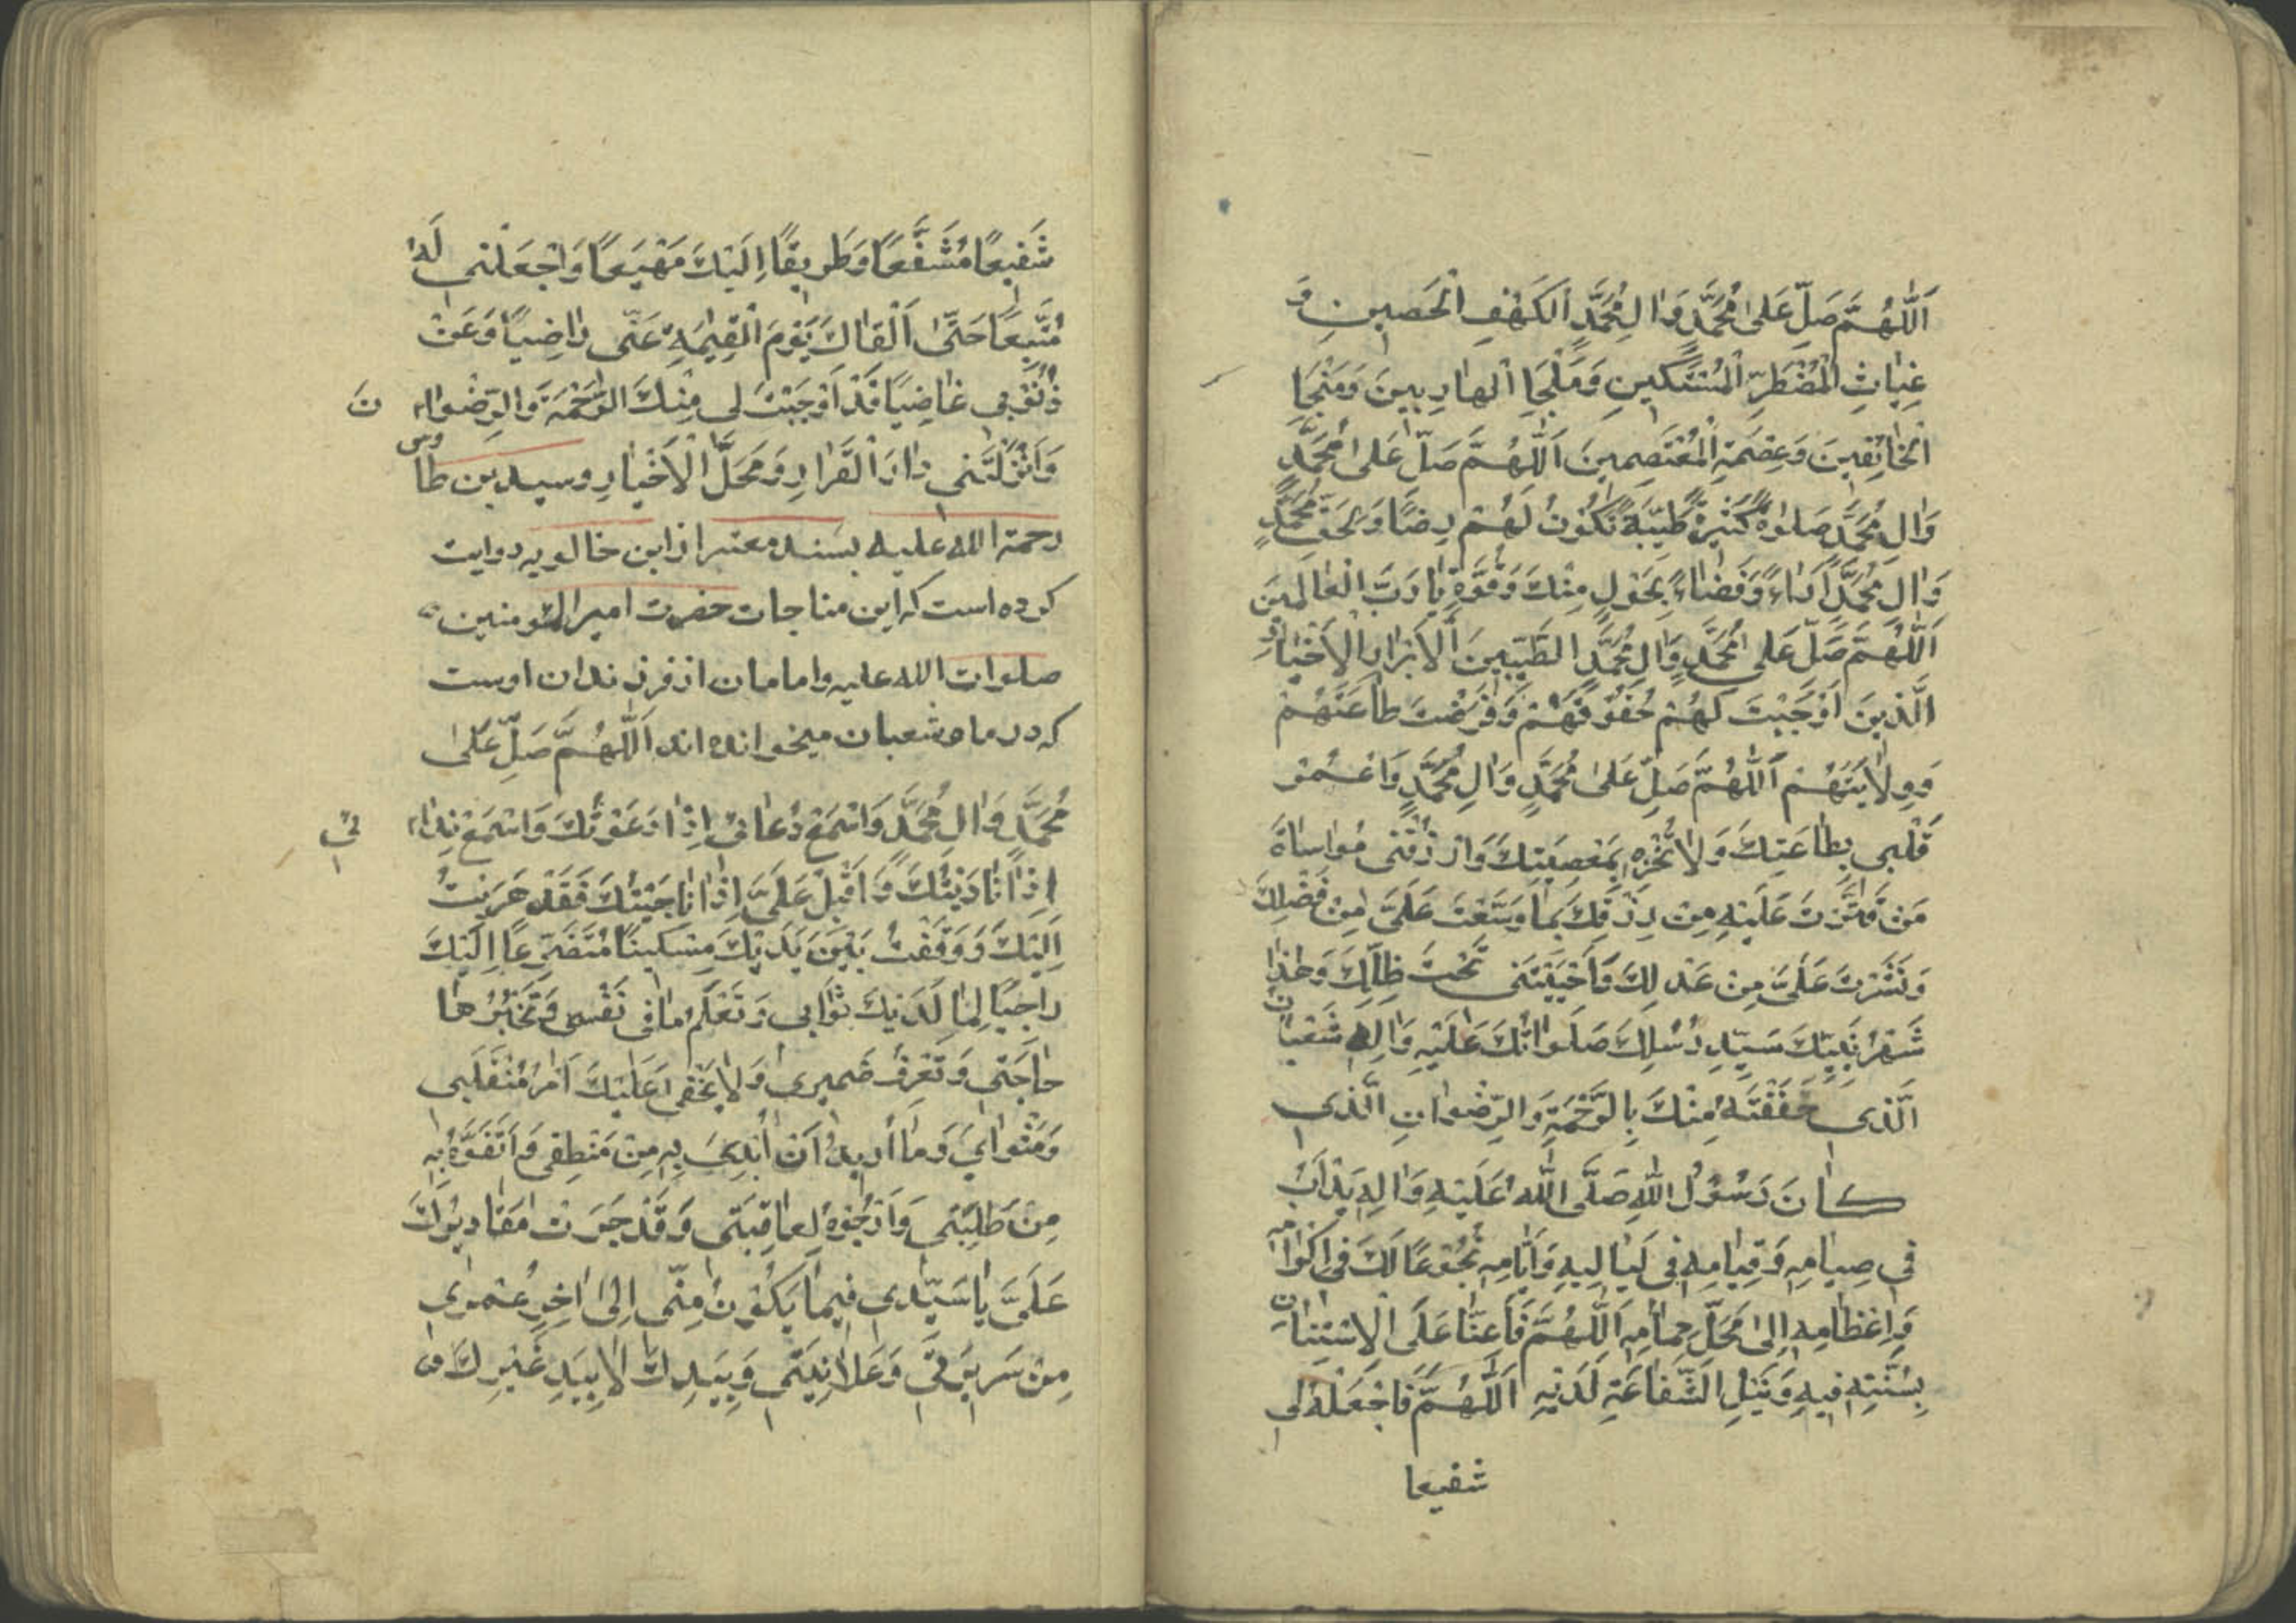 اَللّٰهُمَّ صَلِّ عَلىٰ مُحَمَّدٍ وَاٰلِ مُحَمَّدٍ الْكَهْفِ الْحَصينِ وَ
غِيٰاثِ الْمُضْطَرِّ الْمُسْتَكينِ وَمَلْجَاِ الْهٰارِبينَ وَمَنْجَا
الْخٰائِفينَ وَعِصْمَةِ الْمُعْتَصِمينَ اَللّٰهُمَّ صَلِّ عَلىٰ مُحَمَّدٍ
وَاٰلِ مُحَمَّدٍ صَلوٰةً كَثيرَةً طَيِّبَةً تَكُوْنُ لَهُمْ رِضًا وَلِحَقِّ مُحَمَّدٍ
وَاٰلِ مُحَمَّدٍ اَدٰاءً وَقَضٰاءً بِحَوْلٍ مِنْكَ وَقُوَّةٍ يٰا رَبَّ الْعٰالَمينَ
اَللّٰهُمَّ صَلِّ عَلىٰ مُحَمَّدٍ وَاٰلِ مُحَمَّدٍ الطَّيِّبينَ الْاَبْرٰارِ الْاَخْيٰارِ
الَّذينَ اَوْجَبْتَ لَهُمْ حُقُوْقَهُمْ وَفَرَضْتَ طٰاعَتَهُمْ
وَوِلٰايَتَهُمْ اَللّٰهُمَّ صَلِّ عَلىٰ مُحَمَّدٍ وَاٰلِ مُحَمَّدٍ وَاعْمُرْ
قَلْبي بِطٰاعَتِكَ وَلٰا تُخْزِهِ بِمَعْصِيَتِكَ وَارْزُقْنى مُوٰاسٰاةَ
مَنْ قَتَّرْتَ عَلَيْهِ مِنْ رِزْقِكَ بِمٰا وَسَّعْتَ عَلَىَّ مِنْ فَضْلِكَ
وَنَشَرْتَ عَلَىَّ مِنْ عَدْلِكَ وَاَحْيَيْتَنى تَحْتَ ظِلِّكَ وَهٰذٰا
شَهْرُ نَبِيِّكَ سَيِّدِ رُسُلِكَ صَلَوٰاتُكَ عَلَيْهِ وَاٰلِهِ شَعْبٰانُ
الَّذى حَفَفْتَهُ مِنْكَ بِالرَّحْمَةِ وَالرِّضْوٰانِ الَّذى
كٰانَ رَسُوْلُ اللهِ صَلَّى اللهُ عَلَيْهِ وَاٰلِهِ يَدْاَبُ
في صِيٰامِهِ وَقِيٰامِهِ فى لَيٰاليهِ وَاَيّٰامِهِ بُخُوْعًا لَكَ فى اِكْرٰامِهِ
وَاِعْظٰامِهِ اِلىٰ مَحَلِّ حِمٰامِهِ اَللّٰهُمَّ فَاَعِنّٰا عَلَى الْاِسْتِنٰانِ
بِسُنَّتِهِ فيهِ وَنَيْلِ الشَّفٰاعَةِ لَدَيْهِ اَللّٰهُمَّ فَاجْعَلْهُ لى
شفيعا
شَفيعًا مُشَفَّعًا وَطَريقًا اِلَيْكَ مَهْيَعًا وَاجْعَلْنى لَهُ
مُتَّبِعًا حَتّٰى اَلْقٰاكَ يَوْمَ الْقِيٰمَةِ عَنّى رٰاضِيًا وَعَنْ
ذُنُوْبي غٰاضِيًا قَدْ اَوْجَبْتَ لى مِنْكَ الرَّحْمَةَ وَالرِّضْوٰانَ
وَاَنْزَلْتَنى دٰارَ الْقَرٰارِ وَمَحَلَّ الْاَخْيٰارِ وسيد بن طاوس
رحمة الله عليه بسند معتبر از ابن خالويه روايت
كرده است كه اين مناجات حضرت امير المؤمنين
صلوات الله عليه وامامان از فرزندان اوست
كه در ماه شعبان ميخوانده اند اَللّٰهُمَّ صَلِّ عَلىٰ
مُحَمَّدٍ وَاٰلِ مُحَمَّدٍ وَاسْمَعْ دُعٰائىْ اِذٰا دَعَوْتُكَ وَاسْمَعْ نِدٰائىْ
اِذٰا نٰادَيْتُكَ وَاَقْبِلْ عَلَىَّ اِذٰا نٰاجَيْتُكَ فَقَدْ هَرَبْتُ
اِلَيْكَ وَوَقَفْتُ بَيْنَ يَدَيْكَ مِسْكينًا مُتَضَرِّعًا اِلَيْكَ
رٰاجِيًا لِمٰا لَدَيْكَ ثَوٰابى وَتَعْلَمُ مٰا فى نَفْسى وَتَخْبُرُ
حٰاجَتى وَتَعْرِفُ ضَميرى وَلٰا يَخْفىٰ عَلَيْكَ اَمْرُ مُنْقَلَبى
وَمَثْوٰايَ وَمٰا اُريدُ اَنْ اُبْدِئَ بِهِ مِنْ مَنْطِقى وَاَتَفَوَّهُ بِهِ
مِنْ طَلِبَتى وَاَرْجُوْهُ لِعٰاقِبَتى وَقَدْ جَرَتْ مَقٰاديرُكَ
عَلَىَّ يٰا سَيِّدى فيمٰا يَكُوْنُ مِنّى اِلىٰ اٰخِرِ عُمْرى
مِنْ سَريرَتى وَعَلٰانِيَتى وَبِيَدِكَ لٰا بِيَدِ غَيْرِكَ